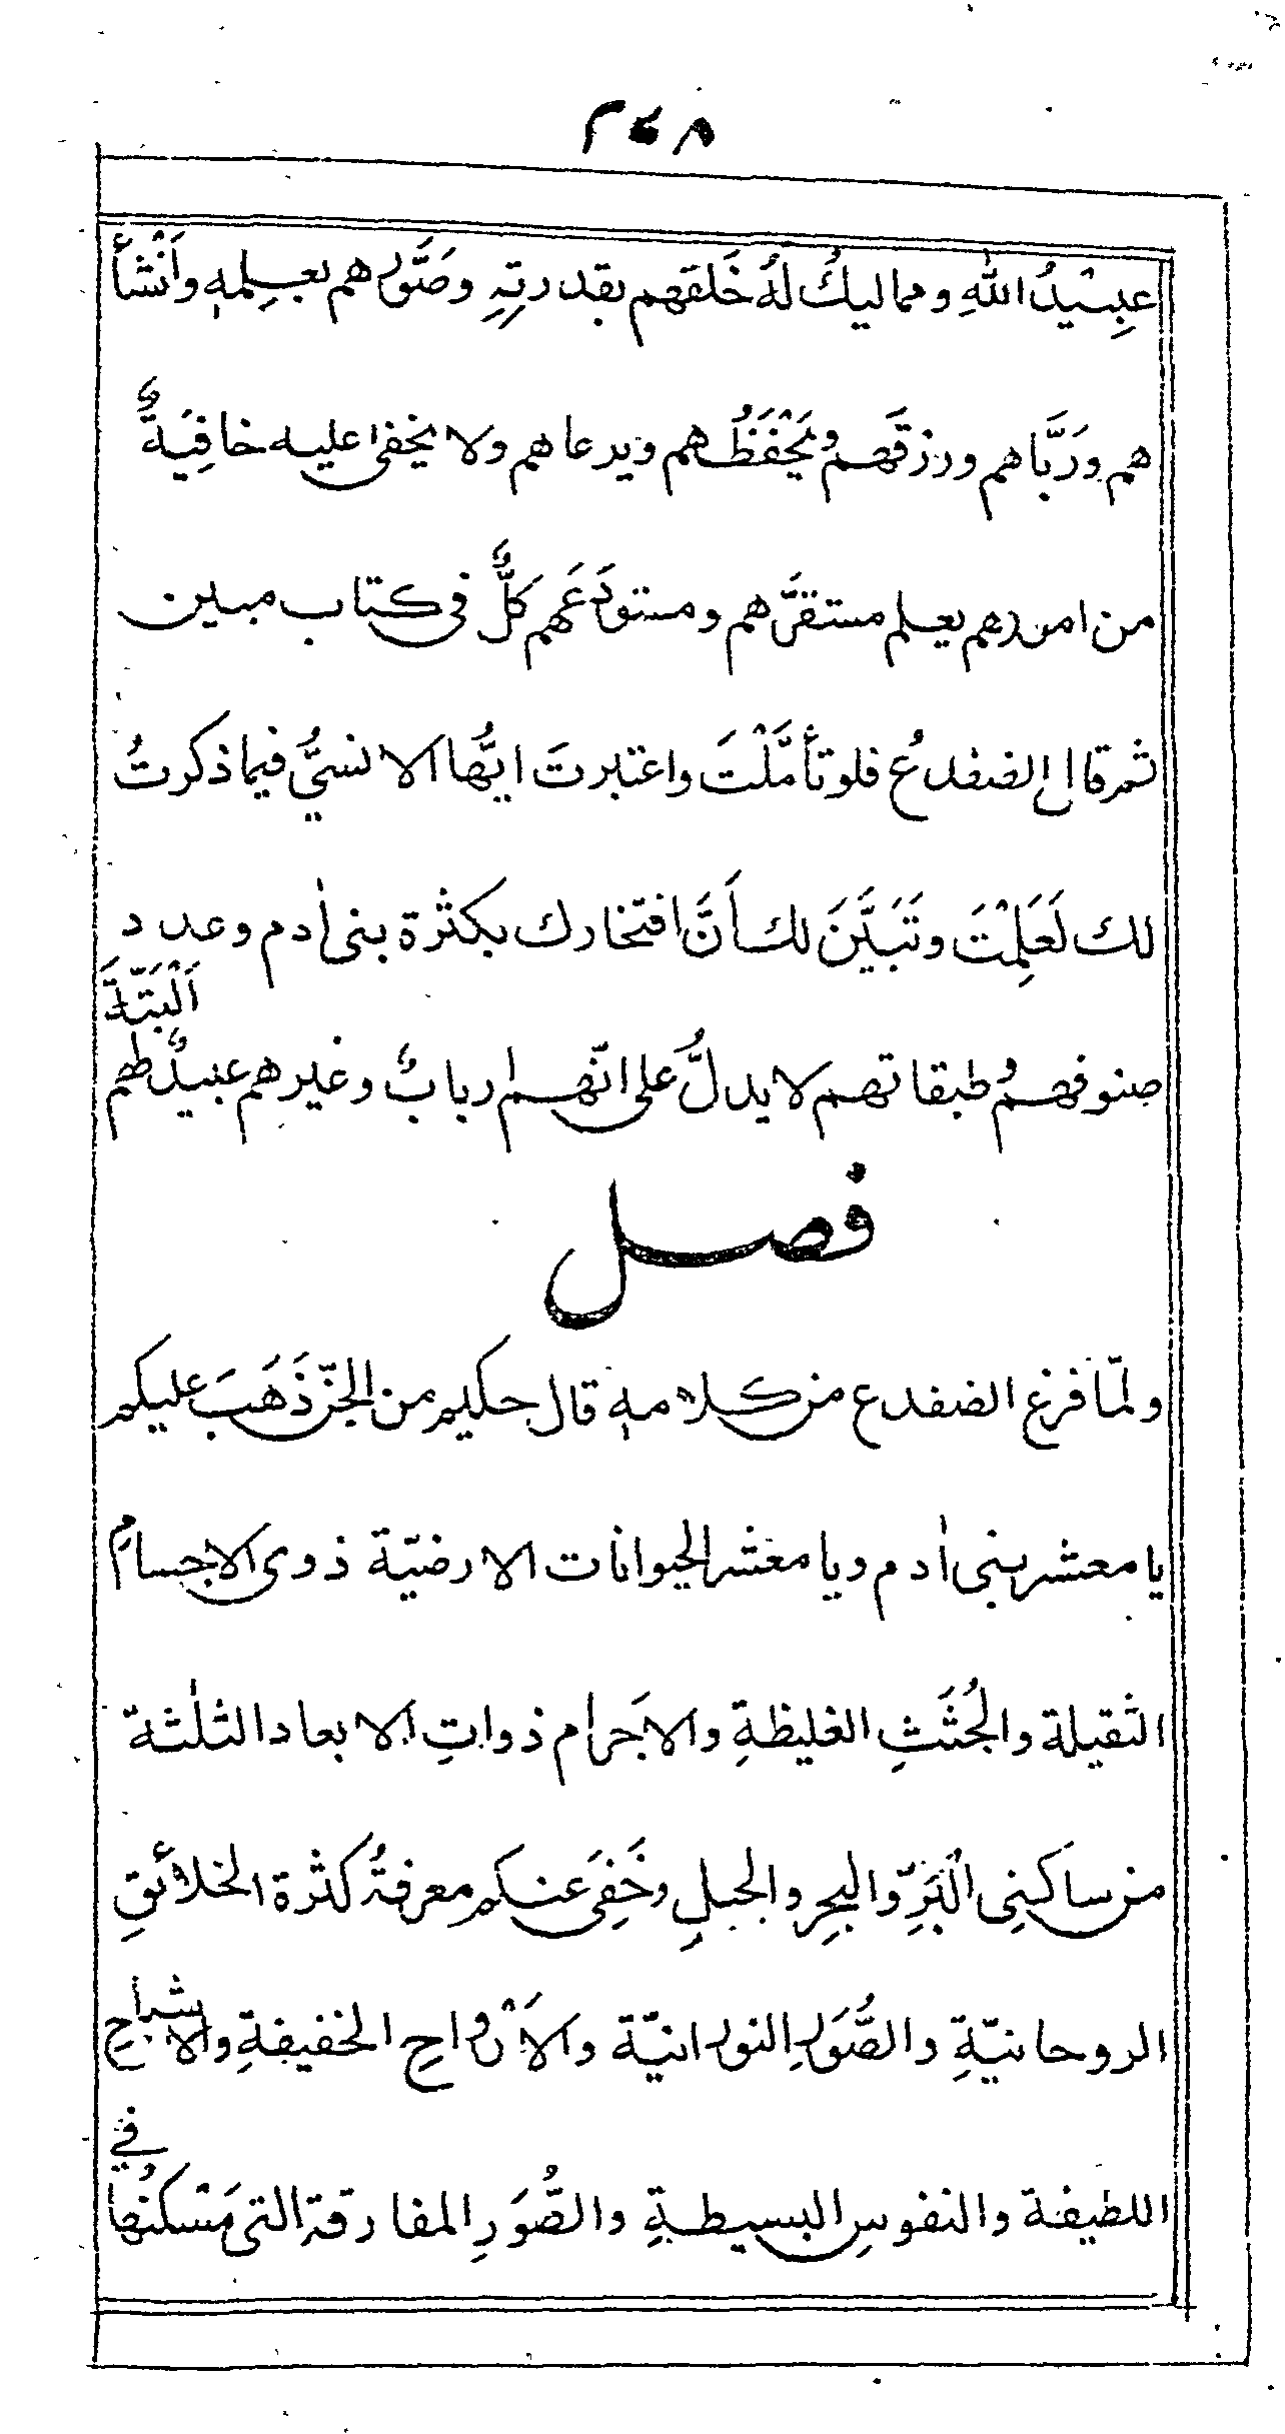 ٣٤٨
عبِيْدُ اللهِ ومماليكُ لهُ خَلقهم بقدرتِهِ وصَوَّرهم بعِلمِهٖ وأَنْشأ
هم ورَبَّاهم ورزقَهم ويَحْفَظُهم ويرعاهم ولا يخفى عليه خافِيَةٌ
من امورهم يعلم مستقرَّهم ومستودَعَهم كلٌّ فى كتاب مبين
ثم قال الضفدعُ فلو تأمَّلْتَ واعتبرتَ ايُّها الانسيُّ فيما ذكرتُ
لك لَعَلِمْتَ وتَبَيَّنَ لك أَنَّ افتخارك بكثرة بنى اٰدم وعدد
صنوفهم وطبقاتهم لا يدلُّ على انّهم اربابٌ وغيرهم عبيدٌ لهم
اَلْبَتَّةَ
فصل
ولمّا فرغ الضفدع من كلامهٖ قال حكيم من الجنّ ذَهَبَ عليكم
يا معشر بنى اٰدم ويا معشر الحيوانات الارضيّة ذوى الاجسامِ
الثقيلة والجُثَثِ الغليظةِ والاَجرام ذواتِ الابعاد الثلٰثة
من ساكنِى الْبَرِّ والبحرِ والجبلِ وخَفِىَ عنكم معرفةُ كثرة الخلائقِ
الروحانيّةِ والصُّوَرِ النورانيّة والاَرْواحِ الخفيفةِ والاشباحِ
اللطيفة والنفوسِ البسيطةِ والصُّوَرِ المفارقةِ التى مَسْكنُها
في